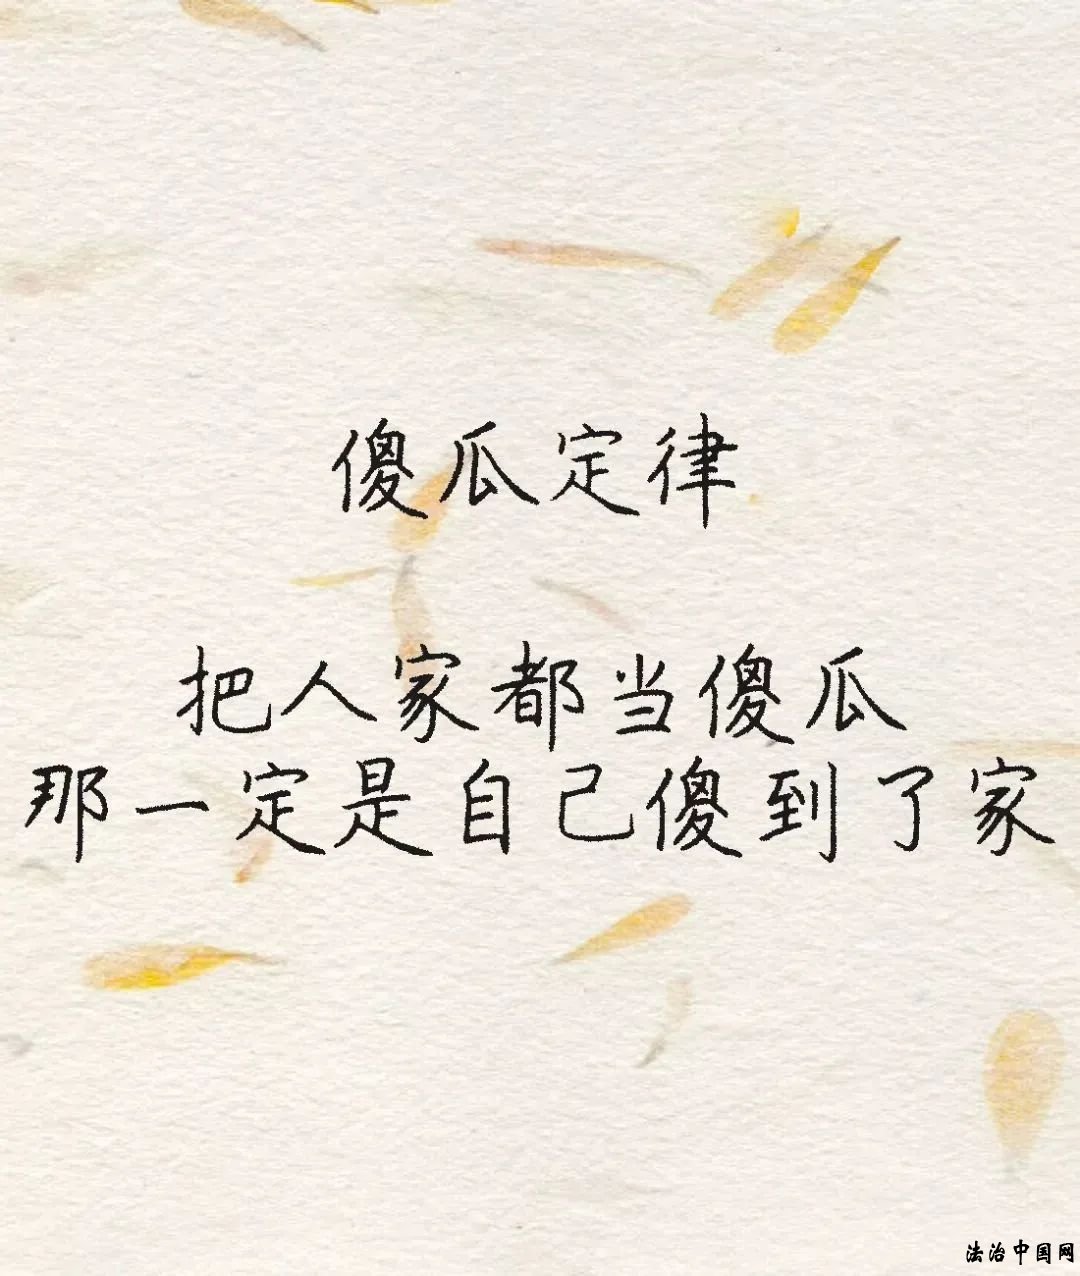 傻瓜定律
把人家都当傻瓜
那一定是自己傻到了家
法治中国网